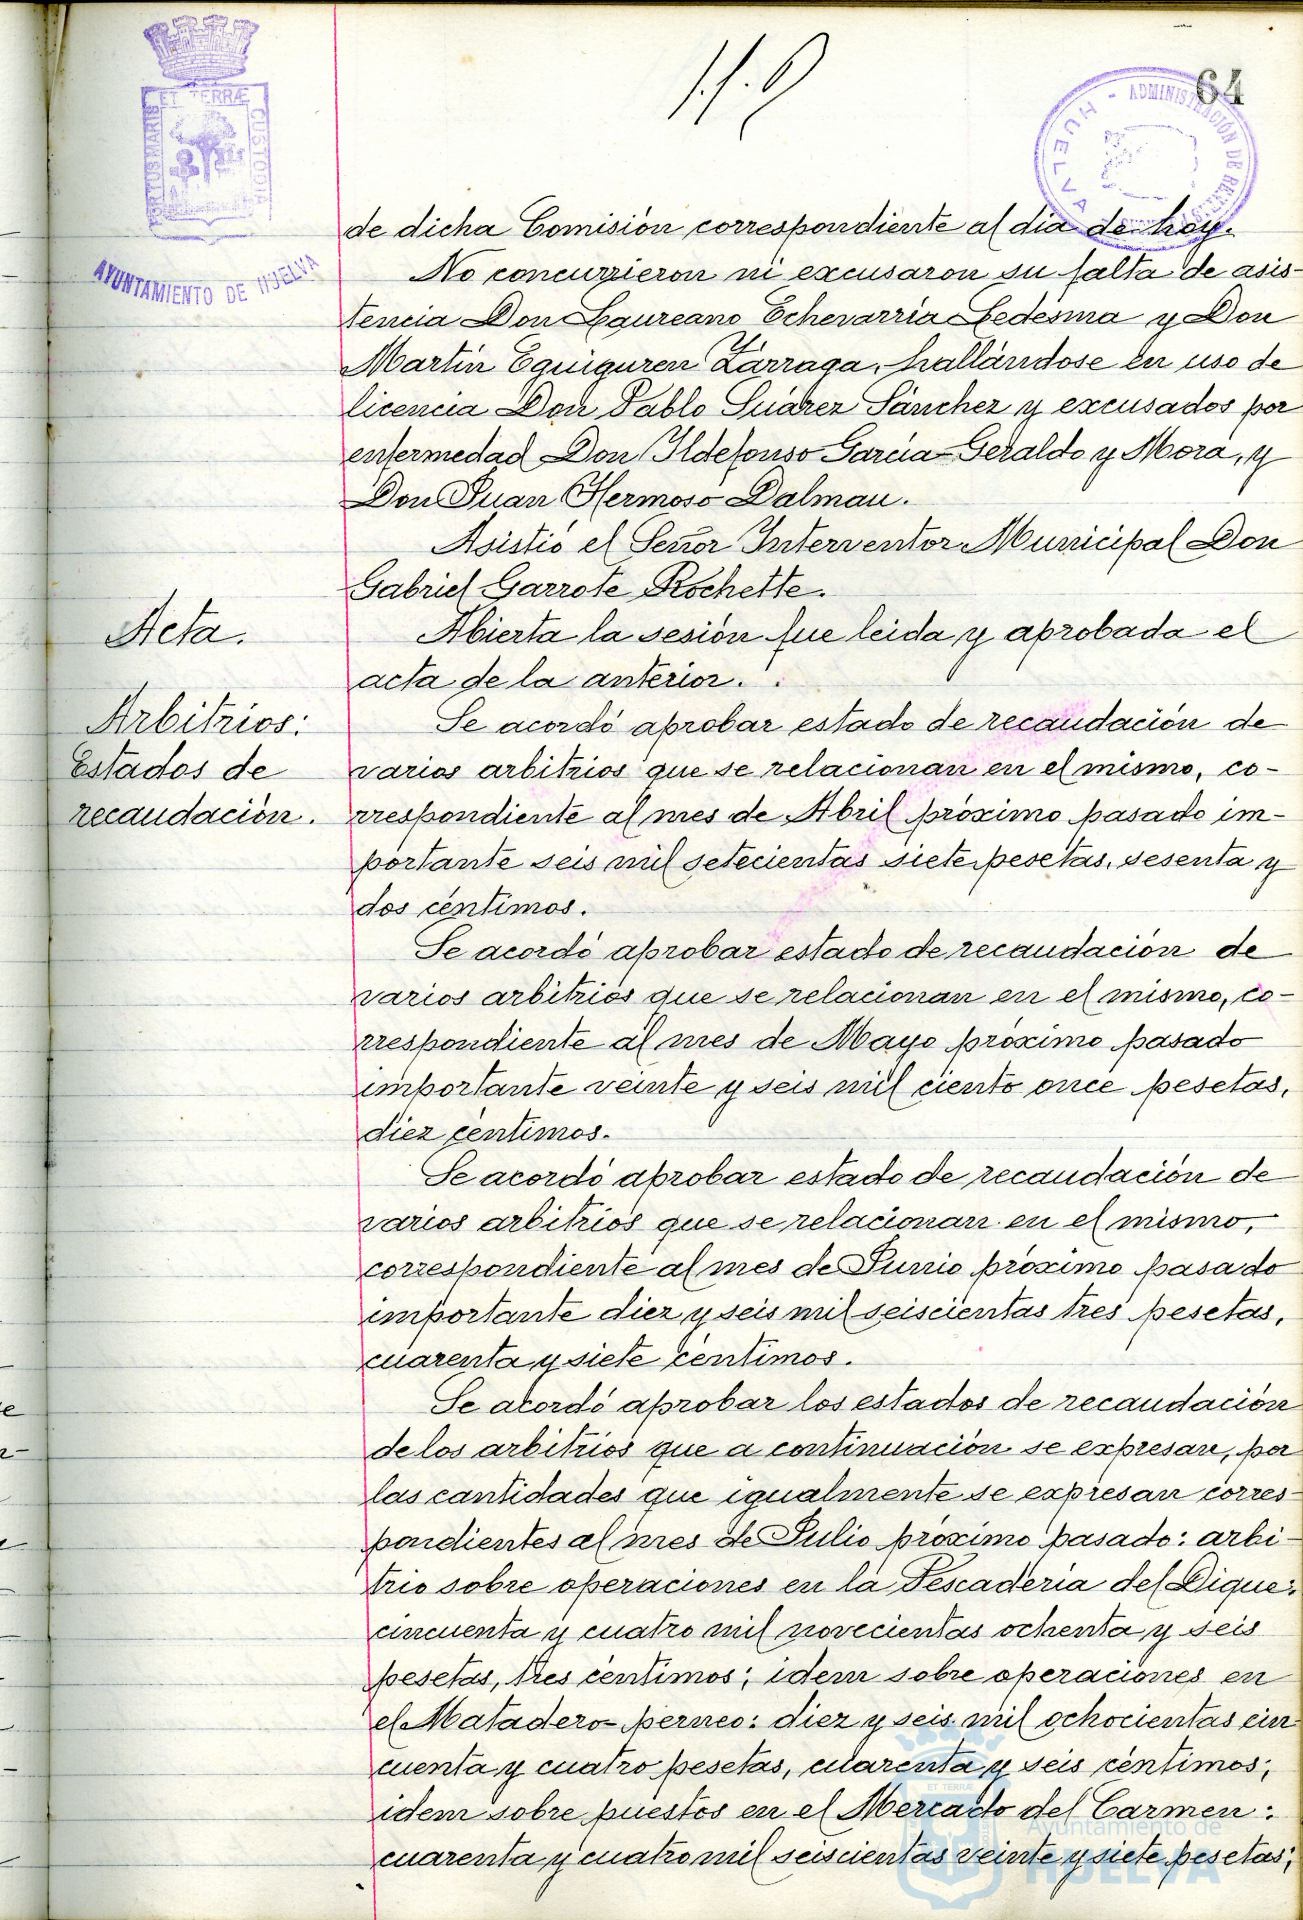 64
ET TERRÆ
PORTUS MARIS
CUSTODIA
AYUNTAMIENTO DE HUELVA
ADMINISTRACIÓN DE RENTAS
HUELVA
de dicha Comisión correspondiente al día de hoy.
No concurrieron ni excusaron su falta de asis-
tencia Don Laureano Echevarría Ledesma y Don
Martín Eguiguren Zárraga, hallándose en uso de
licencia Don Pablo Suárez Sánchez y excusados por
enfermedad Don Ildefonso García-Geraldo y Mora, y
Don Juan Hermoso Dalmau.
Asistió el Señor Interventor Municipal Don
Gabriel Garrote Rochette.
Acta.
Abierta la sesión fue leida y aprobada el
acta de la anterior.
Arbitrios:
Estados de
recaudación.
Se acordó aprobar estado de recaudación de
varios arbitrios que se relacionan en el mismo, co-
rrespondiente al mes de Abril próximo pasado im-
portante seis mil setecientas siete pesetas, sesenta y
dos céntimos.
Se acordó aprobar estado de recaudación de
varios arbitrios que se relacionan en el mismo, co-
rrespondiente al mes de Mayo próximo pasado
importante veinte y seis mil ciento once pesetas,
diez céntimos.
Se acordó aprobar estado de recaudación de
varios arbitrios que se relacionan en el mismo,
correspondiente al mes de Junio próximo pasado
importante diez y seis mil seiscientas tres pesetas,
cuarenta y siete céntimos.
Se acordó aprobar los estados de recaudación
de los arbitrios que a continuación se expresan, por
las cantidades que igualmente se expresan corres-
pondientes al mes de Julio próximo pasado: arbi-
trio sobre operaciones en la Pescadería del Dique:
cincuenta y cuatro mil novecientas ochenta y seis
pesetas, tres céntimos; idem sobre operaciones en
el Matadero-perneo: diez y seis mil ochocientas cin-
cuenta y cuatro pesetas, cuarenta y seis céntimos;
idem sobre puestos en el Mercado del Carmen:
cuarenta y cuatro mil seiscientas veinte y siete pesetas;
ET TERRÆ
Ayuntamiento de
HUELVA